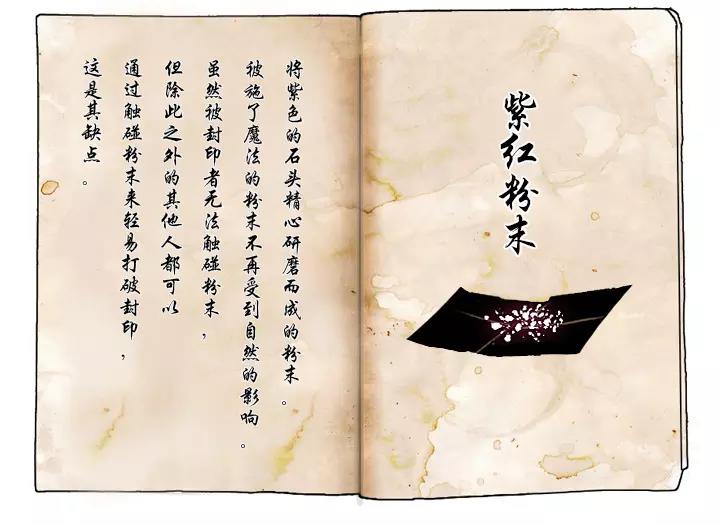 紫红粉末
将紫色的石头精心研磨而成的粉末。
被施了魔法的粉末不再受到自然的影响。
虽然被封印者无法触碰粉末，
但除此之外的其他人都可以
通过触碰粉末来轻易打破封印，
这是其缺点。